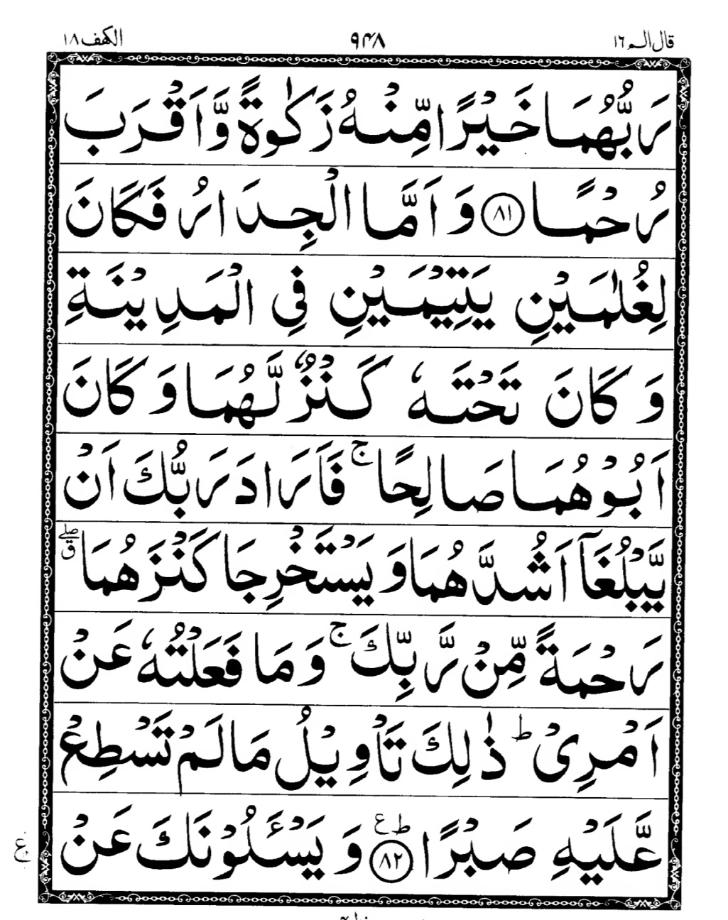 قال الم ١٦ ٩٤٨ الكهف ١٨
رَبُّهُمَا خَيْرًا مِّنْهُ زَكٰوةً وَّاَقْرَبَ
رُحْمًا ﴿٨١﴾ وَ اَمَّا الْجِدَارُ فَكَانَ
لِغُلٰمَيْنِ يَتِيْمَيْنِ فِي الْمَدِيْنَةِ
وَ كَانَ تَحْتَهٗ كَنْزٌ لَّهُمَا وَ كَانَ
اَبُوْهُمَا صَالِحًا ۚ فَاَرَادَ رَبُّكَ اَنْ
يَّبْلُغَآ اَشُدَّهُمَا وَ يَسْتَخْرِجَا كَنْزَهُمَا ۖق
رَحْمَةً مِّنْ رَّبِّكَ ۚ وَ مَا فَعَلْتُهٗ عَنْ
اَمْرِيْ ؕ ذٰلِكَ تَاْوِيْلُ مَا لَمْ تَسْطِعْ
عَّلَيْهِ صَبْرًا ؕع ﴿٨٢﴾ وَ يَسْـَٔلُوْنَكَ عَنْ
ع